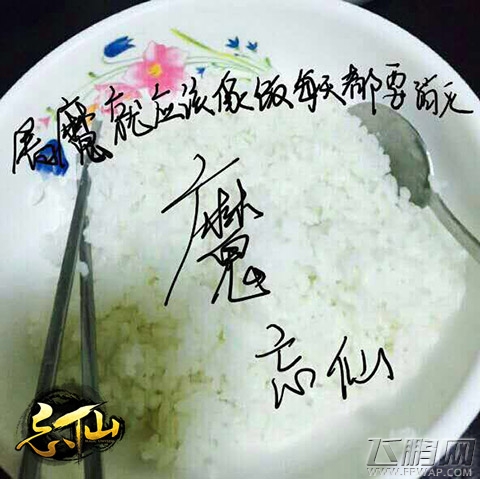 屠魔就应该像饭每天都要消灭
魔
忘仙
忘仙
飞鹏网
WWW.FPWAP.COM